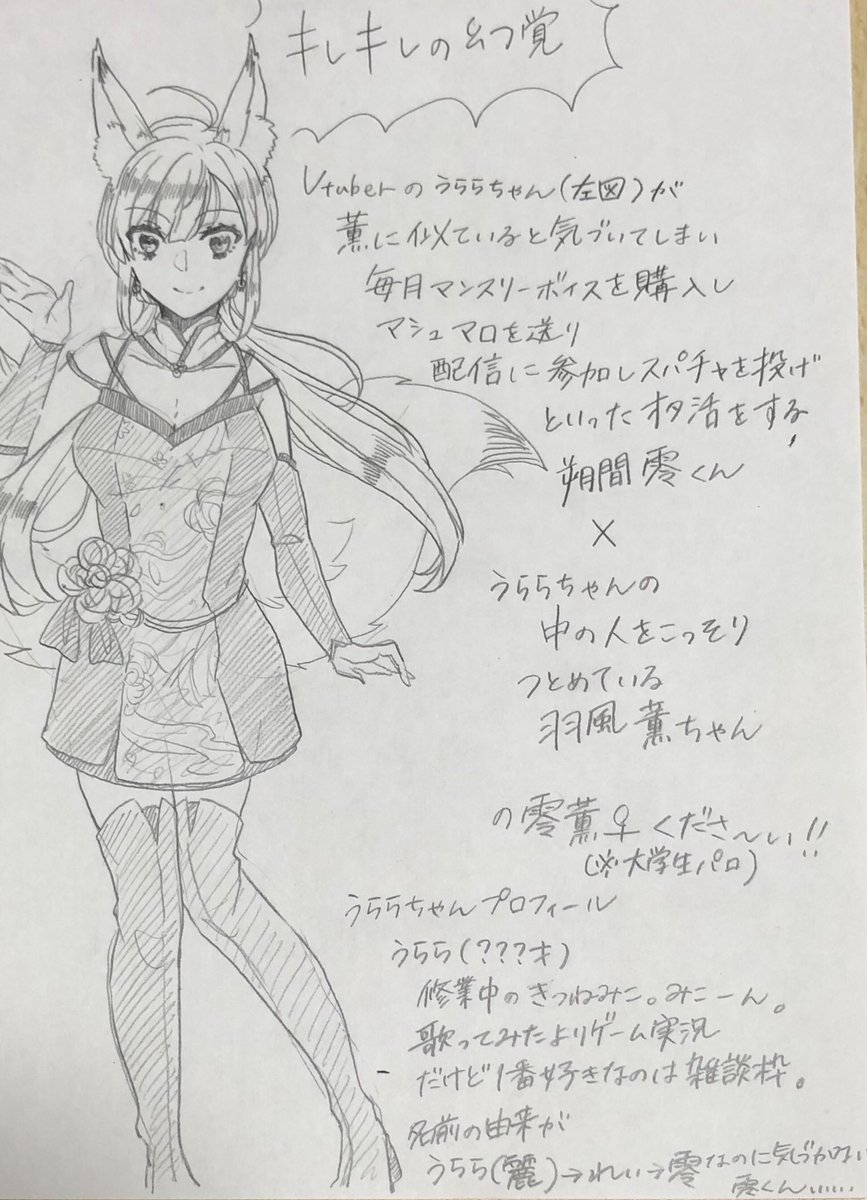 キレキレの幻覚
Vtuberのうららちゃん(左図)が
薫に似ていると気づいてしまい
毎月マンスリーボイスを購入し
マシュマロを送り
配信に参加しスパチャを投げ
といったオタ活をする
朔間零くん
×
うららちゃんの
中の人をこっそり
つとめている
羽風薫ちゃん
の零薫♀くださ〜い!!
(※大学生パロ)
うららちゃんプロフィール
うらら(???才)
修業中のきつねみこ。みこーん。
歌ってみたよりゲーム実況
だけど1番好きなのは雑談枠。
名前の由来が
うらら(麗)→れい→零なのに気づかない
零くん……